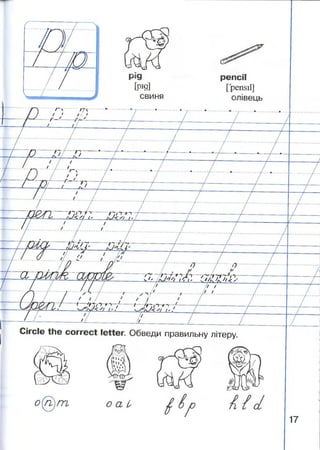 Pp
pig pencil
[pɪg] ['pensɪl]
свиня олівець
p p p
p p p
Pp p p
pen pen pen
pig pig pig
a pink apple a pink apple
Open! Open! Open!
Circle the correct letter. Обведи правильну літеру.
o n m o a i f b p h l d
17